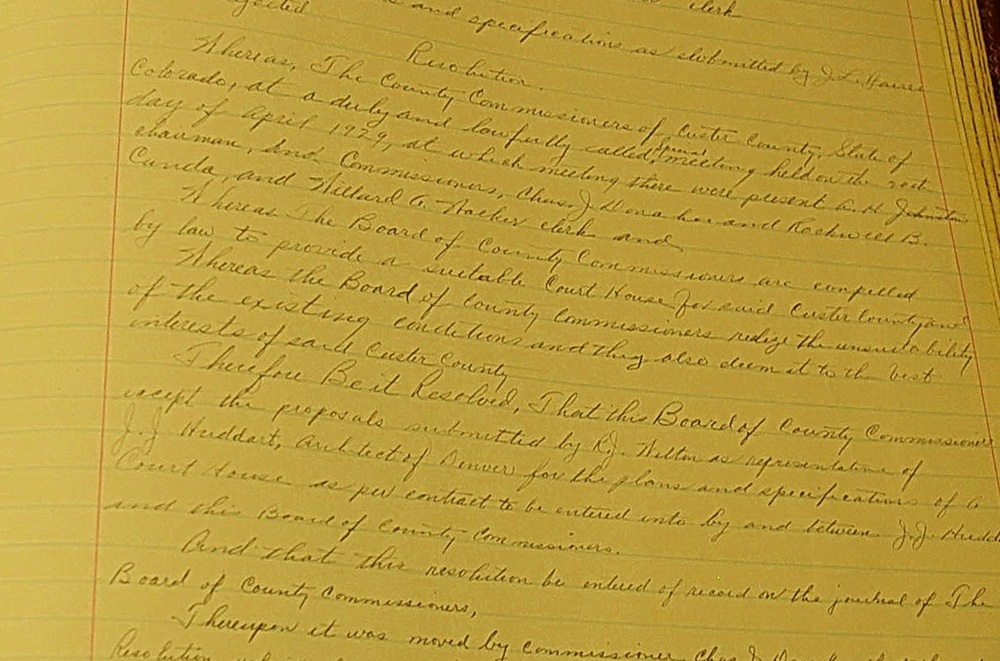 clerk
and specifications as submitted by J.L.
Resolution.
Whereas, The County Commissioners of, Custer County, State of
Colorado, at a duly and lawfully called, special meeting held on the
day of April 1929, at which meeting there were present A.H. Johnston
chairman, and Commissioners, Chas. J. Donahue and Rockwell B.
Canda, and Willard G. clerk and,
Whereas The Board of County Commissioners are compelled
by law to provide a suitable Court House for said Custer County, and
Whereas the Board of County Commissioners realize the
of the existing conditions and they also deem it to the best
interests of said Custer County
Therefore Be it Resolved, That this Board of County Commissioners
accept the proposals submitted by R.J. Walter as representative of
J.J Huddart, Architect of Denver for the plans and specifications of a
Court House as per contract to be entered into by and between J.J. Hudd
and this Board of County Commissioners.
And that this resolution be entered of record on the journal of The
Board of County Commissioners,
Thereupon it was moved by Commissioner Chas. J.
Resolution